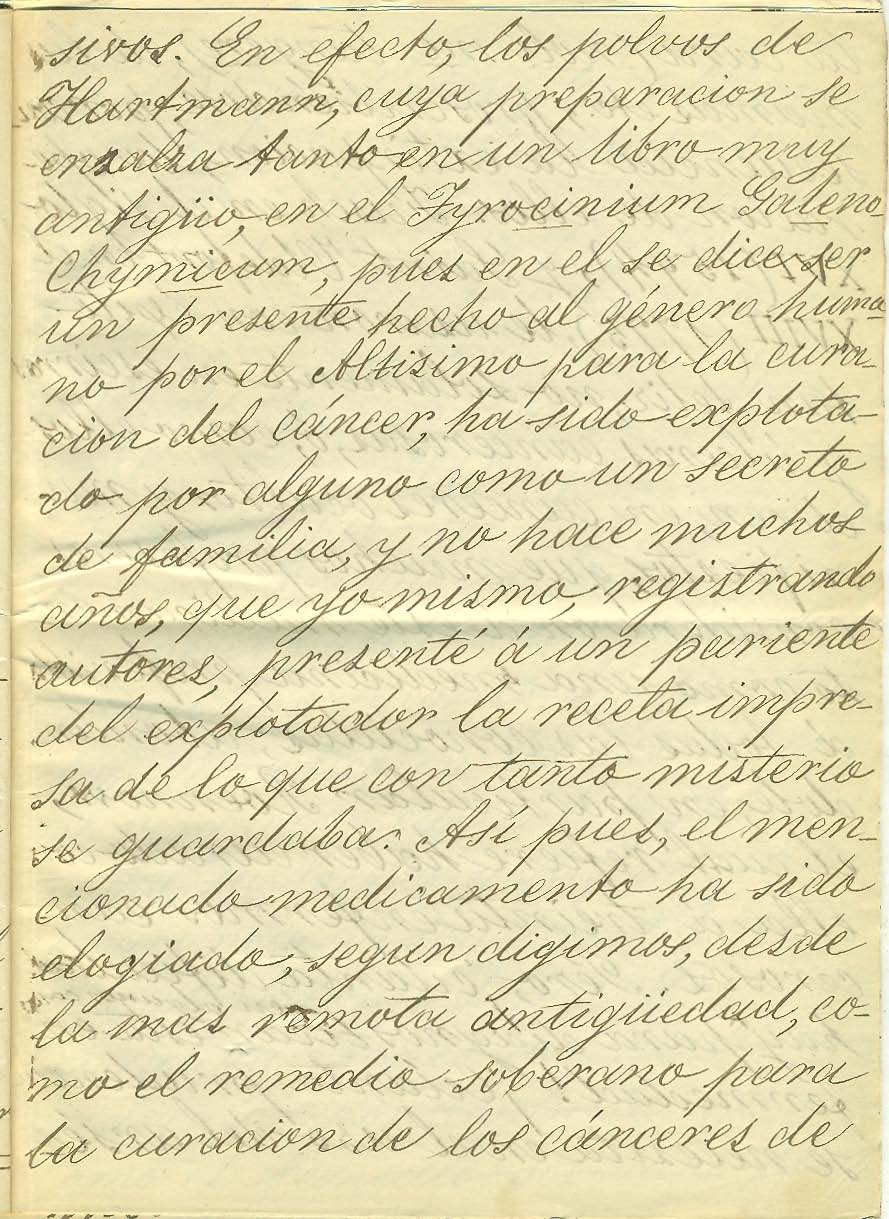 sivos. En efecto, los polvos de
Hartmann, cuya preparacion se
enzalza tanto en un libro muy
antigüo, en el Tyrocinium Galeno
Chymicum, pues en el se dice ser
un presente hecho al género huma
no por el Altisimo para la cura-
cion del cáncer, ha sido explota-
do por alguno como un secreto
de familia, y no hace muchos
años, que yo mismo, registrando
autores, presenté á un pariente
del explotador la receta impre-
sa de lo que con tanto misterio
se guardaba. Así pues, el men-
cionado medicamento ha sido
elogiado, segun digimos, desde
la mas remota antigüedad, co-
mo el remedio soberano para
la curacion de los cánceres de